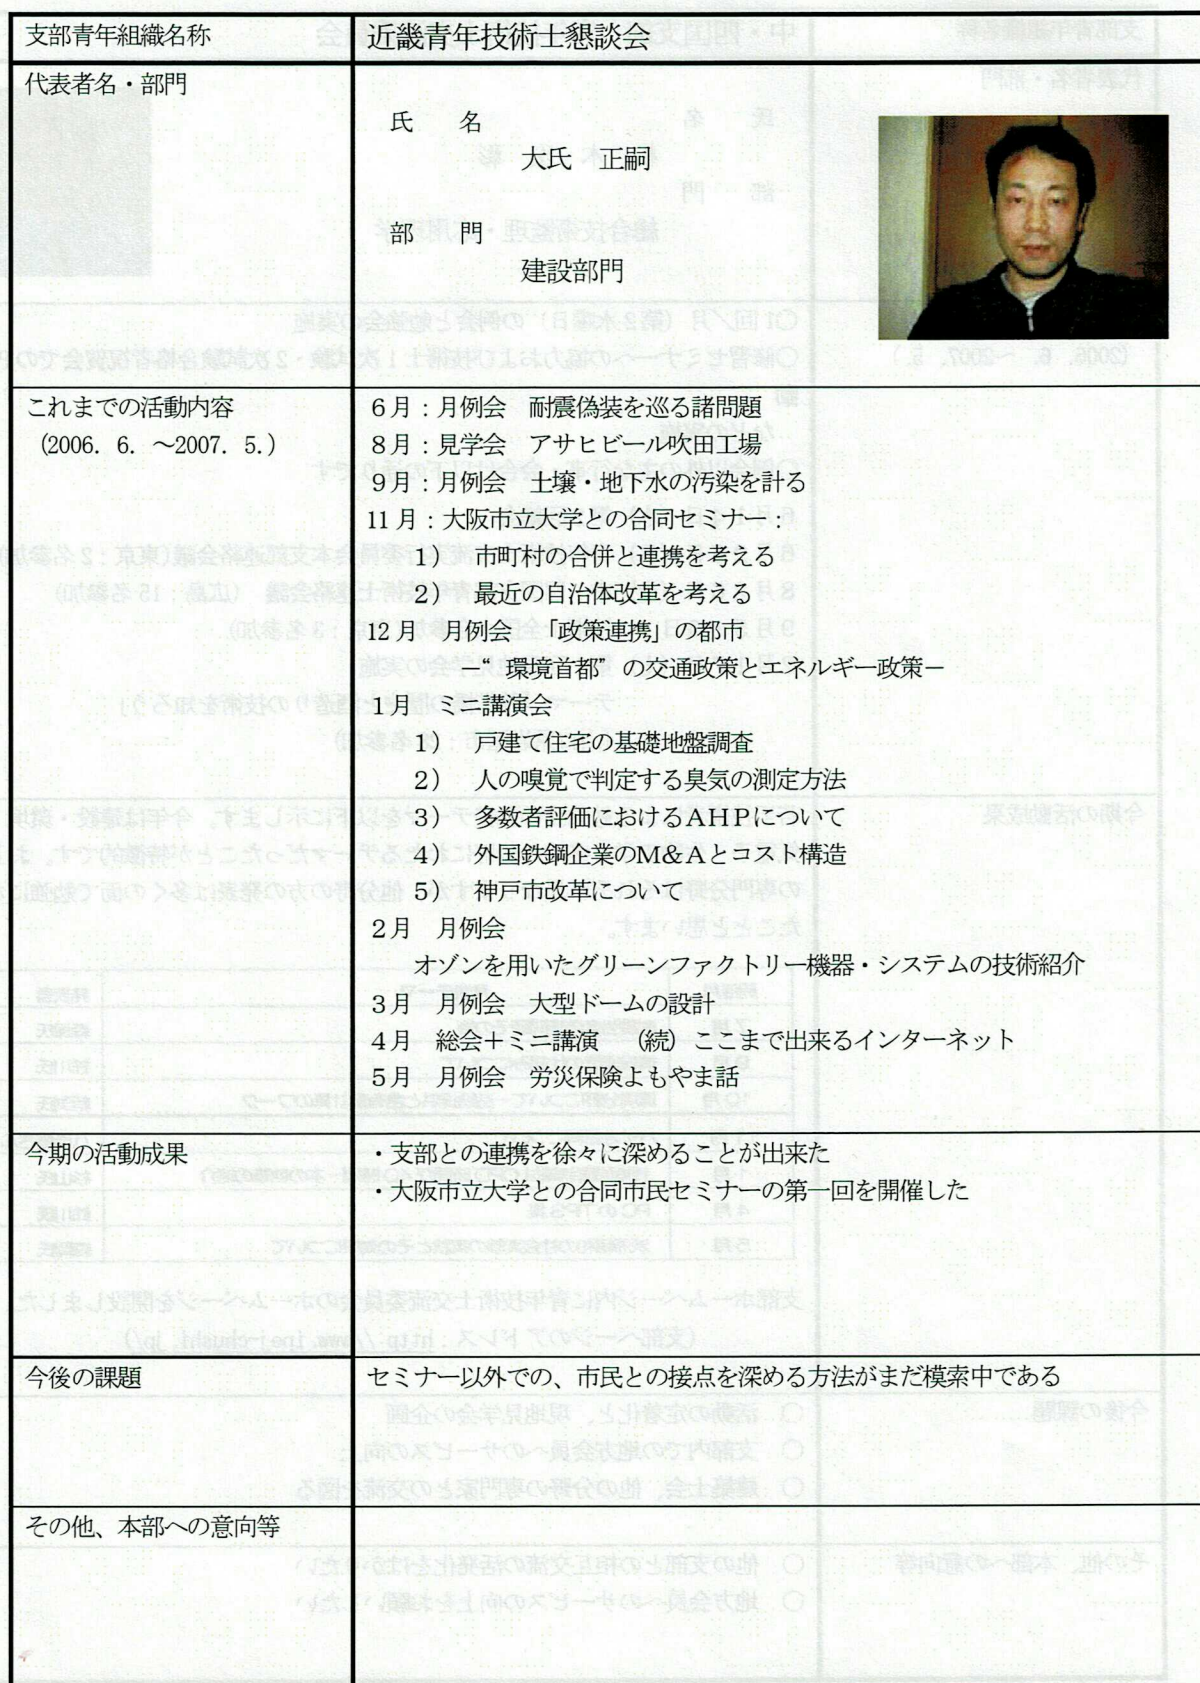 支部青年組織名称
近畿青年技術士懇談会
代表者名・部門
氏　名
大氏　正嗣
部　門
建設部門
これまでの活動内容
(2006. 6. ～2007. 5.)
６月：月例会　耐震偽装を巡る諸問題
８月：見学会　アサヒビール吹田工場
９月：月例会　土壌・地下水の汚染を計る
11月：大阪市立大学との合同セミナー：
１）　市町村の合併と連携を考える
２）　最近の自治体改革を考える
12月　月例会　「政策連携」の都市
－“環境首都”の交通政策とエネルギー政策－
１月　ミニ講演会
１）　戸建て住宅の基礎地盤調査
２）　人の嗅覚で判定する臭気の測定方法
３）　多数者評価におけるＡＨＰについて
４）　外国鉄鋼企業のM&Aとコスト構造
５）　神戸市改革について
２月　月例会
オゾンを用いたグリーンファクトリー機器・システムの技術紹介
３月　月例会　大型ドームの設計
４月　総会＋ミニ講演　（続）ここまで出来るインターネット
５月　月例会　労災保険よもやま話
今期の活動成果
・支部との連携を徐々に深めることが出来た
・大阪市立大学との合同市民セミナーの第一回を開催した
今後の課題
セミナー以外での、市民との接点を深める方法がまだ模索中である
その他、本部への意向等